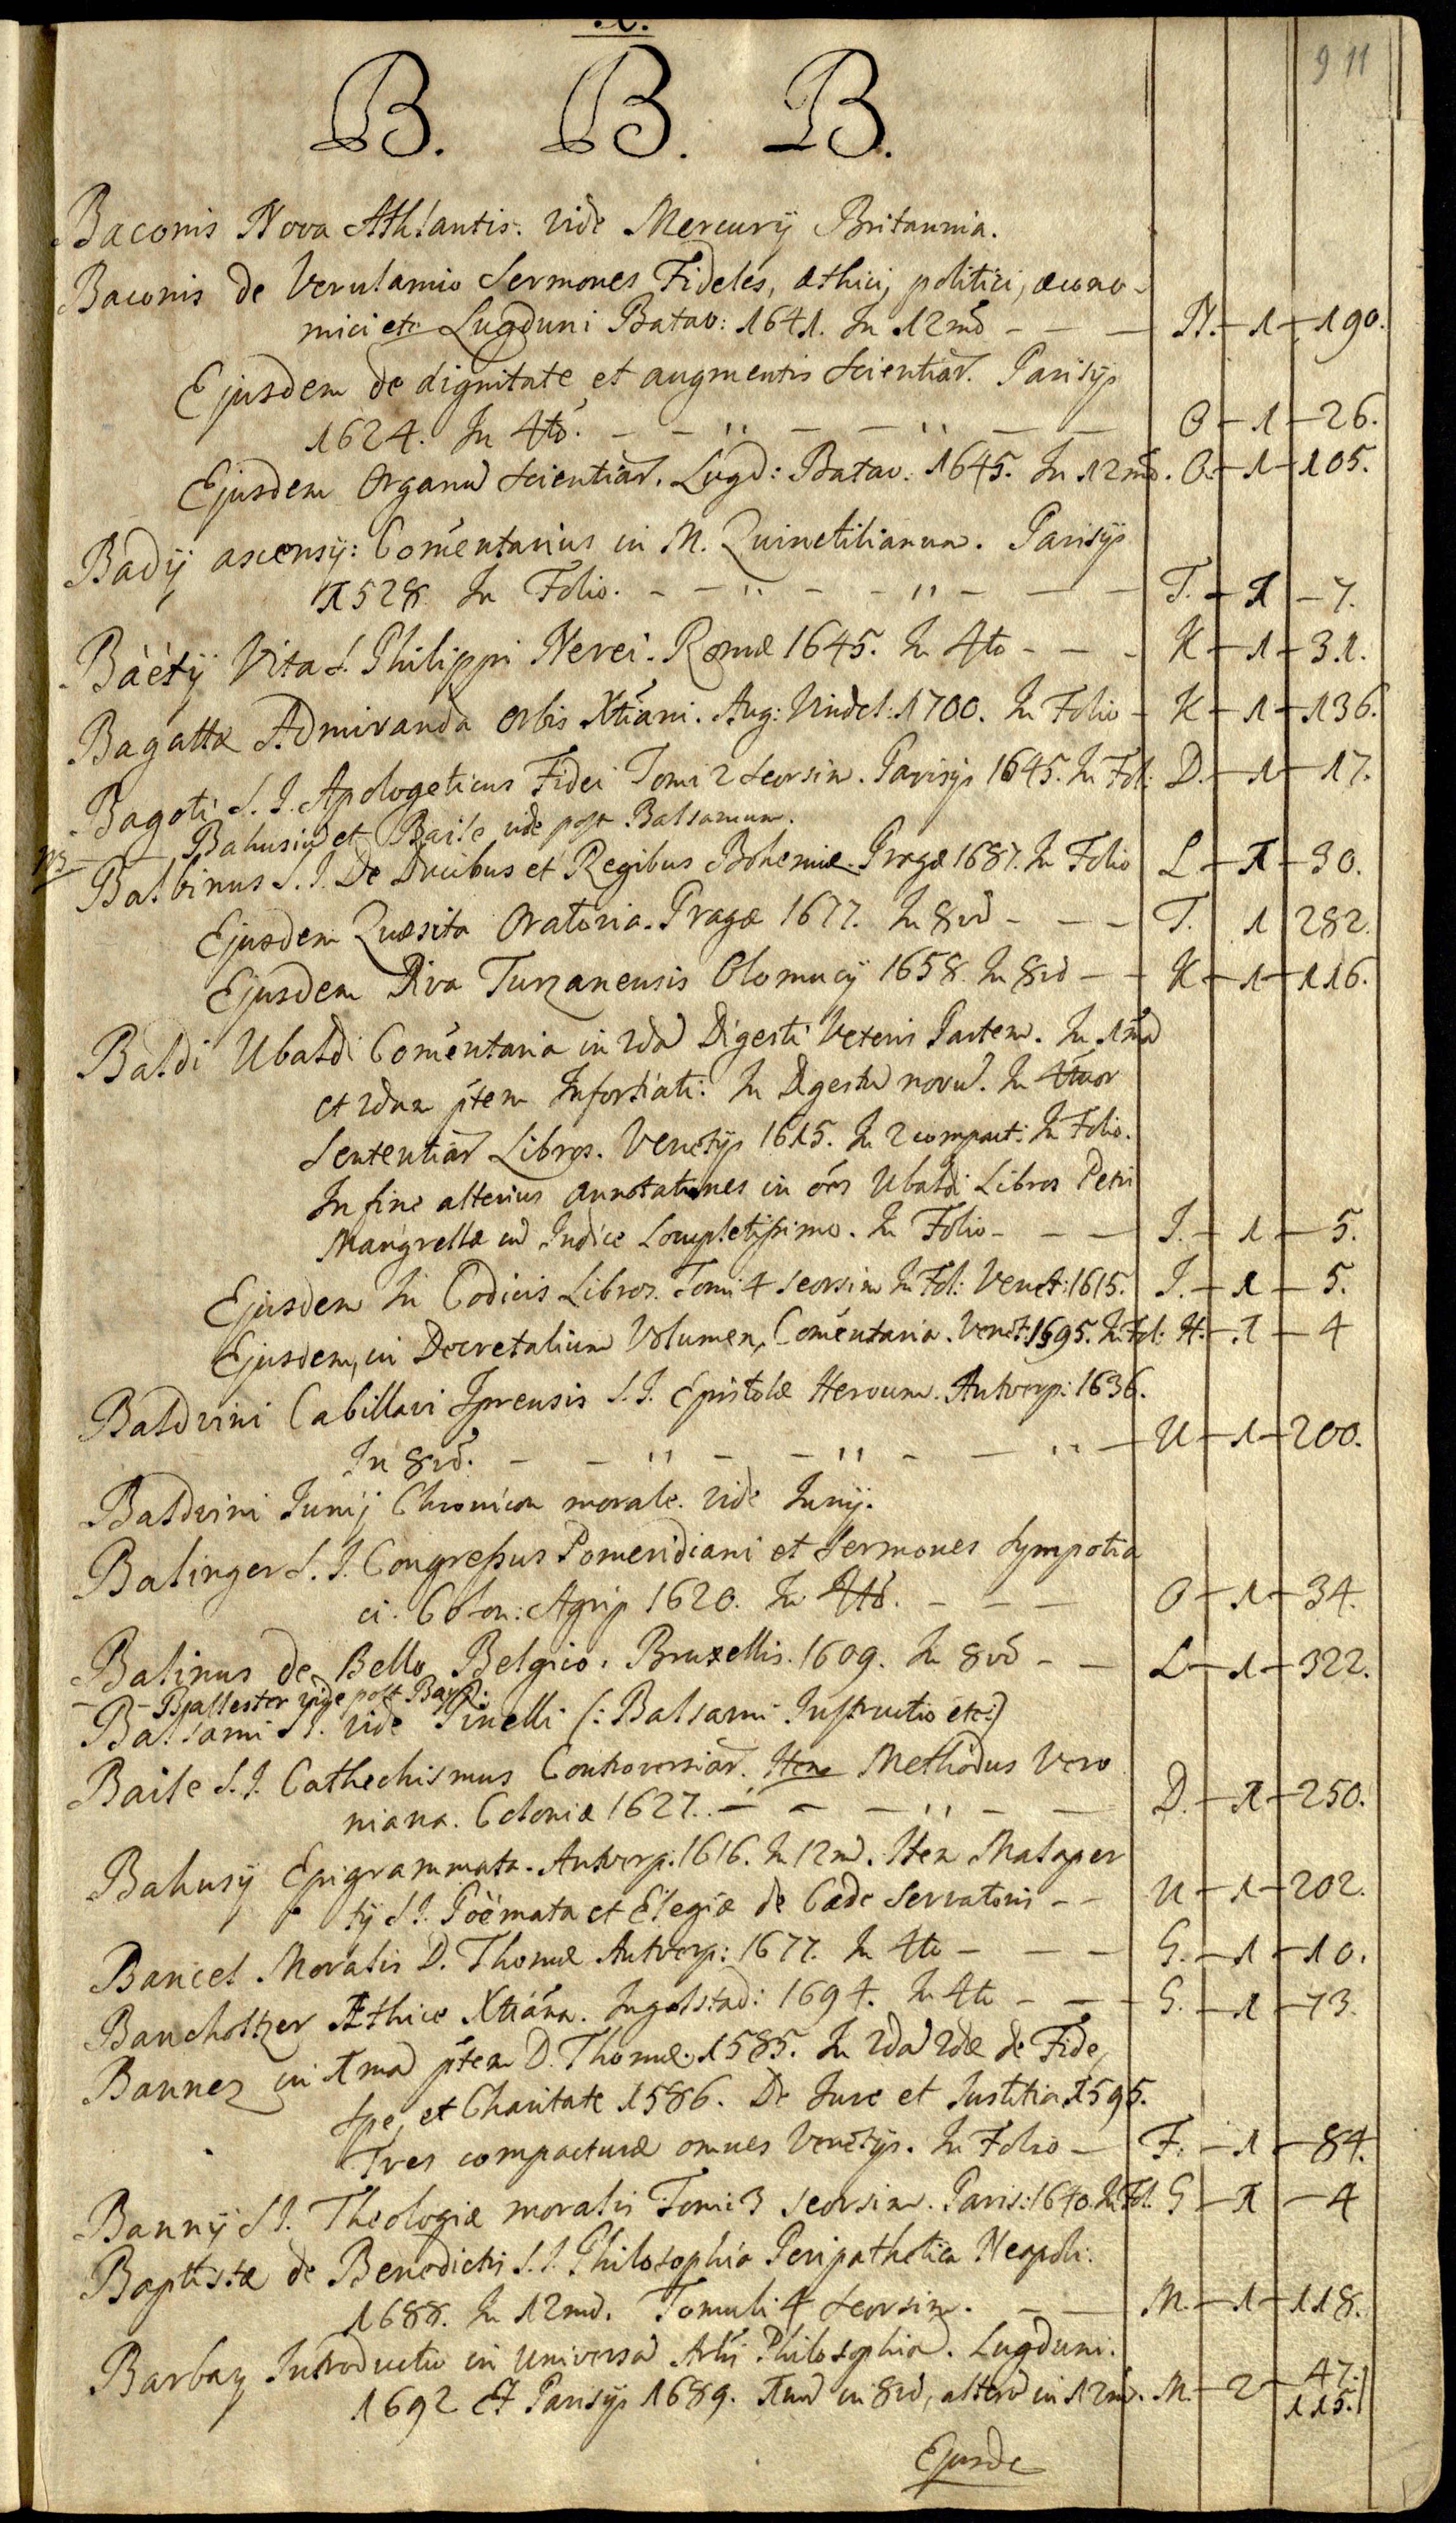 9 11
B. B. B.
Baconis Nova Athlantis. vide Mercurij Britannia.
Baconis de Verulamio Sermones Fideles, æthici, politici, œcono-
mici etc Lugduni Batav: 1641. In 12mo - - - N. - 1 - 190.
Ejusdem de dignitate et augmentis Scientiar̄. Parisijs
1624. In 4to. - - " - - " - - O - 1 - 26.
Ejusdem Organū Scientiar̄. Lugd: Batav: 1645. In 12mo. O. - 1 - 105.
Badij ascensij: Com̄entarius in M. Quinctilianum. Parisijs
1528 In Folio. - - " - - " - - - T. - 1 - 7.
Bàètij Vita S. Philippi Nerei. Romæ 1645. In 4to - - - K - 1 - 31.
Bagattæ Admiranda Orbis Xtiāni. Aug: Vindel: 1700. In Folio - K - 1 - 136.
Bagoti S. J. Apologeticus Fidei Tomi 2 seorsim. Parisijs 1645. In Fol: D. - 1 - 17.
NB - - Bahusiū et Baile vide post Balsamum.
Balbinus S. J. De Ducibus et Regibus Bohemiæ. Pragæ 1687. In Folio L - 1 - 30.
Ejusdem Quæsita Oratoria. Pragæ 1677. In 8vo - - - T. 1 282.
Ejusdem Diva Turzanensis Olomucij 1658. In 8vo - - K - 1 - 116.
Baldi Ubaldi Com̄entaria in 2dā Digesti Veteris Partem. In 1mā
et 2dam p̄tem Infortiati: In Digestū novū. In 4tuor
Sententiar̄ Libros. Venetijs 1615. In 2 compact: In Folio.
In fine alterius annotationes in oēs Ubaldi Libros Petri
Mangrellæ cū Indice Completissimo. In Folio - - - J. - 1 - 5.
Ejusdem In Codicis Libros. Tomi 4 seorsim In Fol: Venet: 1615. J. - 1 - 5.
Ejusdem, in Decretalium Volumen, Com̄entaria. Venet: 1595. In Fol: H. - 1 - 4
Baldvini Cabillavi Iprensis S. J. Epistolæ Heroum. Antverp: 1636.
In 8vo. - - " - - " - - " - U - 1 - 200.
Baldvini Junij Chronicon morale. vide Junij.
Balinger S. J. Congressus Pomeridiani et Sermones Sympotia
ci. Colon: Agrip 1620. In 4to. - - - O - 1 - 34.
Balinus de Bello Belgico. Bruxellis. 1609. In 8vo - - L - 1 - 322.
- - Ballester vide post Bayū.
Balsami S J. vide Pinelli (: Balsami Instructio etc:)
Baile S. J. Cathechismus Controversiar̄. Item Methodus Vero
niana. Coloniæ 1627. - - - " - - D. - 1 - 250.
Bahusij Epigrammata. Antverp. 1616. In 12mo. Item Malaper
tij S J. Poëmata et Elegiæ de Cæde Servatoris - - U - 1 - 202.
Bancel Moralis D. Thomæ Antverp: 1677. In 4to - - - G. - 1 - 10.
Bancholtzer Æthice Xtiāna. Ingolstad: 1694. In 4to - - - G. - 1 - 73.
Bannez in 1mā p̄tem D. Thomæ. 1585. In 2dā 2dæ de Fide,
Spe, et Charitate 1586. De Jure et Justitia 1595.
Tres compacturæ omnes Venetijs. In Folio - F. - 1 - 84.
Banny S J. Theologiæ moralis Tomi 3 seorsim. Paris: 1640. In Fol. G - 1 - 4
Baptistæ de Benedictis S. J. Philosophia Peripathetica Neapoli.
1688. In 12mo. Tomuli 4 seorsim. - - M. - 1 - 118.
Barbay Introductio in universā Arist̄ Philosophiā. Lugduni.
1692 Et Parisijs 1689. 1mū in 8vo, alterū in 12mo. M. - 2 - 47.
115.
Ejusde